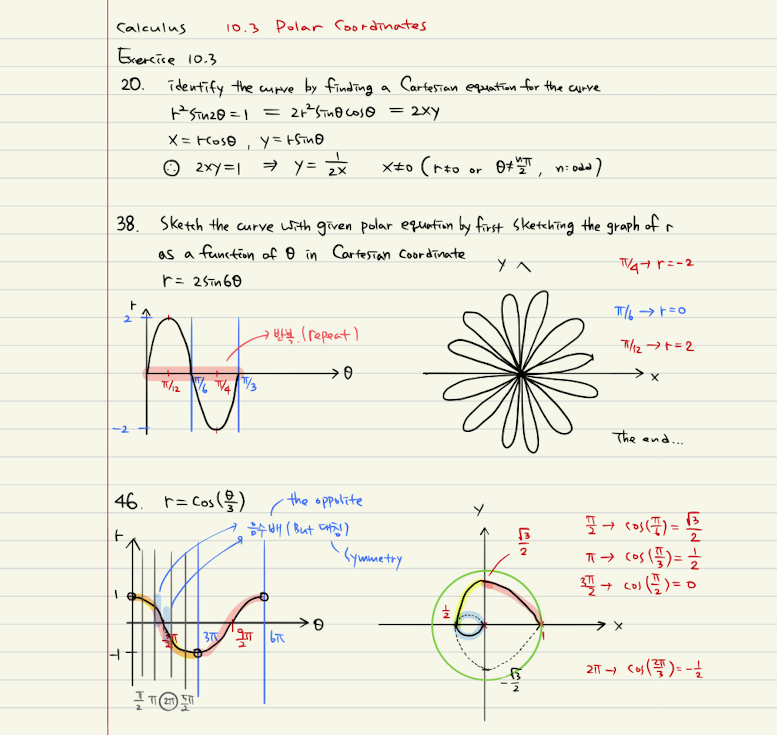 Calculus 10.3 Polar Coordinates
Exercise 10.3
20. identify the curve by finding a Cartesian equation for the curve
r²sin2θ = 1 = 2r²sinθcosθ = 2xy
x = rcosθ , y = rsinθ
∴ 2xy=1 ⇒ y = 1/2x x≠0 (r≠0 or θ≠nπ/2, n:odd)
38. Sketch the curve with given polar equation by first sketching the graph of r
as a function of θ in Cartesian Coordinate
r = 2sin6θ
r
2
-2
π/12
π/6
π/4
π/3
θ
반복 (repeat)
y
x
π/4 → r = -2
π/6 → r = 0
π/12 → r = 2
The end...
46. r = cos(θ/3)
the oppolite
음수배 (But 대칭)
Symmetry
r
1
-1
π/2 π 2π 5π/2
3π/2
3π
9π/2
6π
θ
y
√3/2
1/2
1
x
-√3/2
π/2 → cos(π/6) = √3/2
π → cos(π/3) = 1/2
3π/2 → cos(π/2) = 0
2π → cos(2π/3) = -1/2